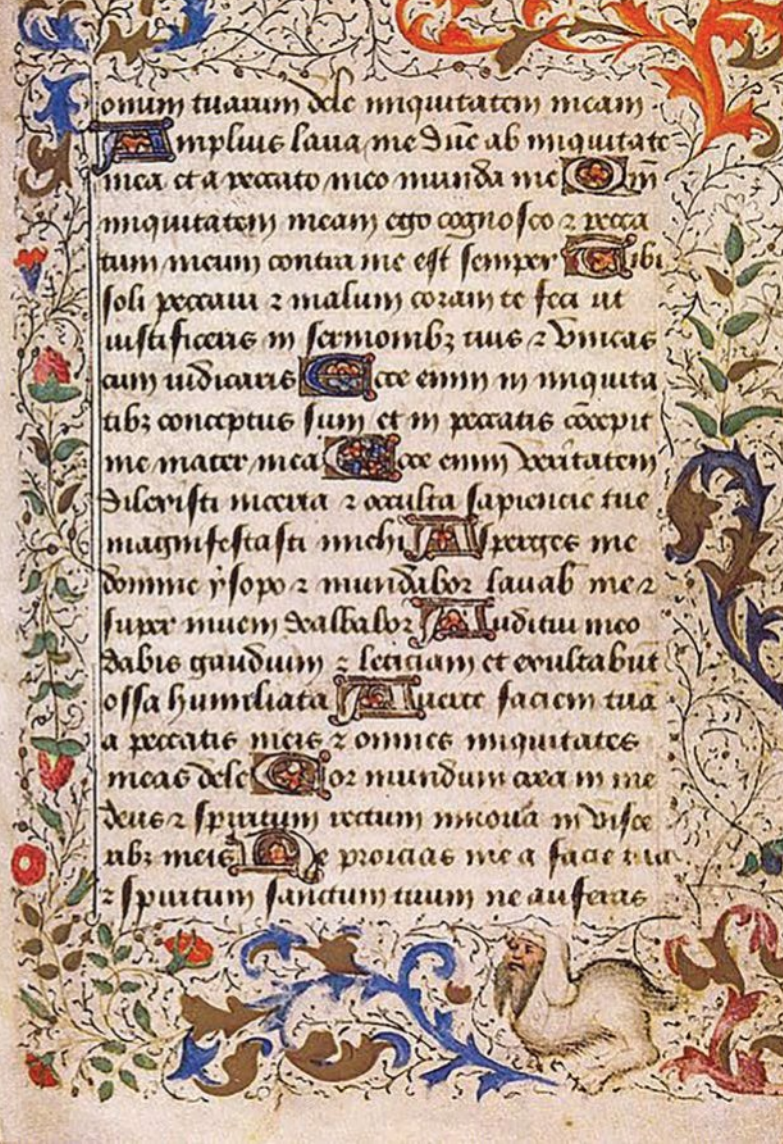 onum tuarum dele iniquitatem meam.
Amplius laua me Dūc ab iniquitate
mea et a peccato meo munda me Qm̄
iniquitatem meam ego cognosco ⁊ pecca
tum meum contra me est semper Tibi
soli peccaui ⁊ malum coram te feci ut
iustificeris in sermonibꝫ tuis ⁊ vincas
cum iudicaris Ecce enim in iniquita
tibꝫ conceptus sum et in peccatis cōcepit
me mater mea Ecce enim veritatem
dilexisti incerta ⁊ occulta sapiencie tue
magnifestasti michi Asperges me
domine ysopo ⁊ mundabor lauab me ⁊
super niuem dealbabor Auditui meo
dabis gaudium ⁊ leticiam et exultabūt
ossa humiliata Auerte faciem tuā
a peccatis meis ⁊ omnes iniquitates
meas dele Cor mundum crea in me
deus ⁊ spiritum rectum innoua in visce
ribꝫ meis Ne proicias me a facie tua
⁊ spiritum sanctum tuum ne auferas